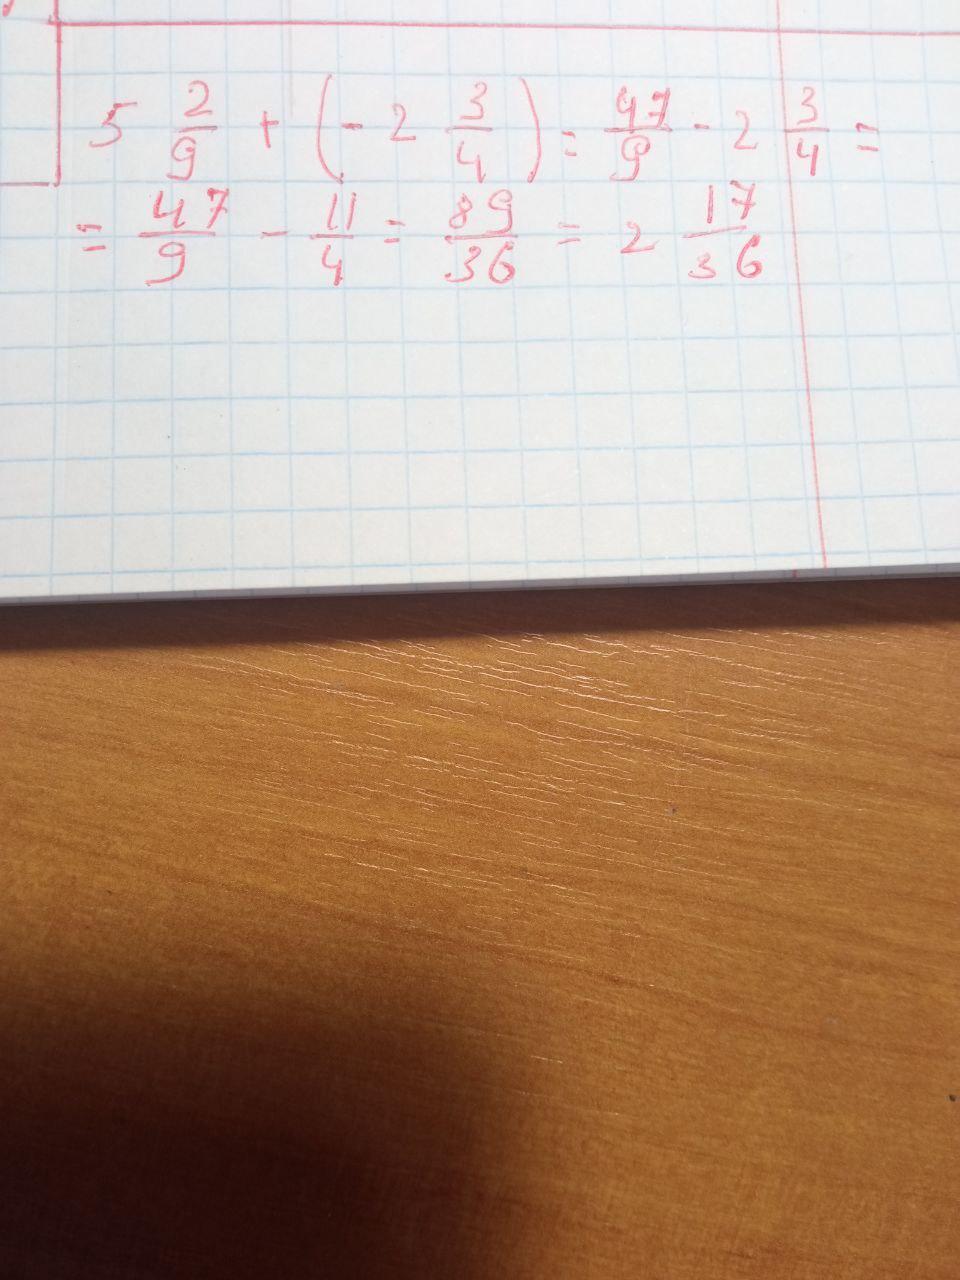 5 2/9 + (- 2 3/4) = 47/9 - 2 3/4 =
= 47/9 - 11/4 = 89/36 = 2 17/36